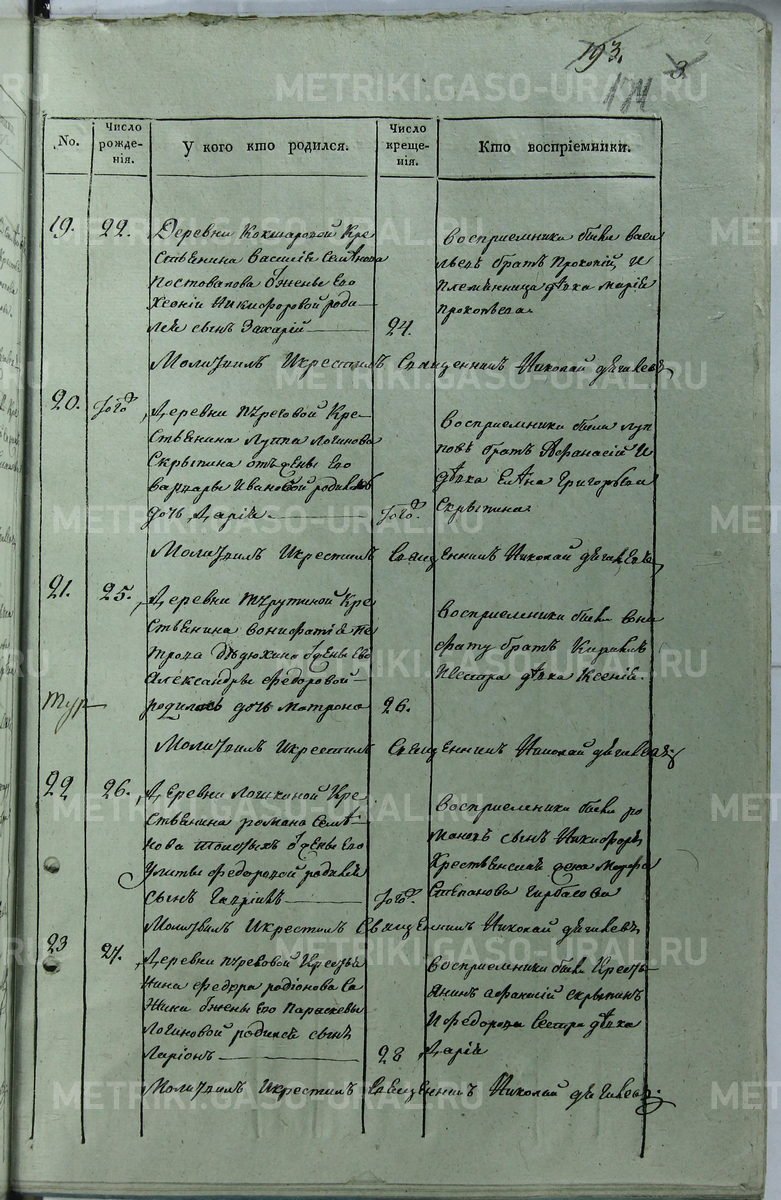 193.
174
No.
Число рожденія.
У кого кто родился.
Число крещенія.
Кто воспріемники.
19.
22.
Деревни Кокшаровой Кре
ственина Василія Семѣнова
Постовалова ѿ жены Его
Ксении Никифоровой роди
лся сынъ Захарій
24.
Восприемники были Васи
льевъ братъ Прокопій, И
племѣнница дѣвка Марія
прокопьева.
Молитвилъ Икрестилъ Священникъ Николай
20.
Того
Деревни Кре
ственина Луппа Логинова
Скрыпина отъ жены Его
Варвары Ивановой родилась
дочь Дарія
Того.
Восприемники были луп
повъ братъ Афанасій И
дѣвка Елѣна Григорьева
Скрыпина
Молитвилъ Икрестилъ Священникъ Николай
21.
25.
Деревни Кре
ственина Вонифатія Пе
трова Дѣдюхина ѿ жены Его
Александры Федоровой
родилась дочь Матрона
26.
Восприемники были Вони
фату братъ Кирилъ
Исестра дѣвка Ксения.
Молитвилъ Икрестилъ Священникъ Николай
22
26.
Деревни Кре
ственина романа Семѣ
нова ѿ жены Его
Улиты Федоровой родился
сынъ Гавріилъ
Того.
Восприемники были ро
мановъ сынъ Никифоръ
Крестьенская жена Марфа
Степанова
Молитвилъ Икрестилъ Священникъ Николай
23
27.
Деревни Кресья
нина Федора родіонова
ѿ жены Его Параскевы
Логиновой родился сынъ
Ларіонъ
28
Восприемники были Кресть
янинъ афанасій скрыпинъ
И федорова сестра дѣвка
Дарія
Молитвилъ Икрестилъ Священникъ Николай
METRIKI.GASO-URAL.RU